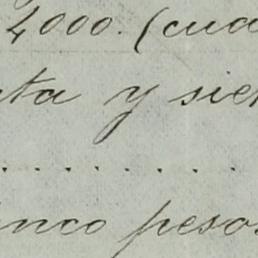 4000. (cua
ta y sie
. . . . . . . . .
inco pesos